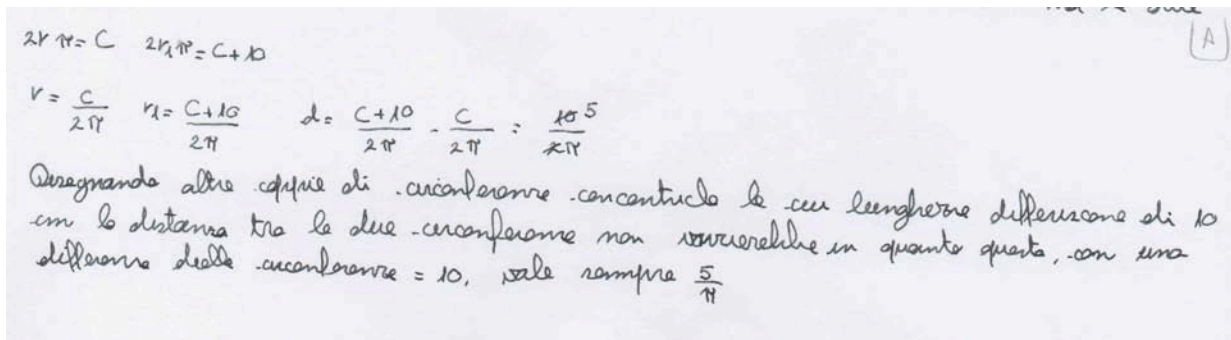 2rπ = C   2r₁π = C + 10
[A]
r = C/2π   r₁ = (C+10)/2π   d = (C+10)/2π - C/2π = 10/2π 5
Disegnando altre coppie di circonferenze concentriche le cui lunghezze differiscono di 10
cm la distanza tra le due circonferenze non varierebbe in quanto questa, con una
differenza delle circonferenze = 10, vale sempre 5/π